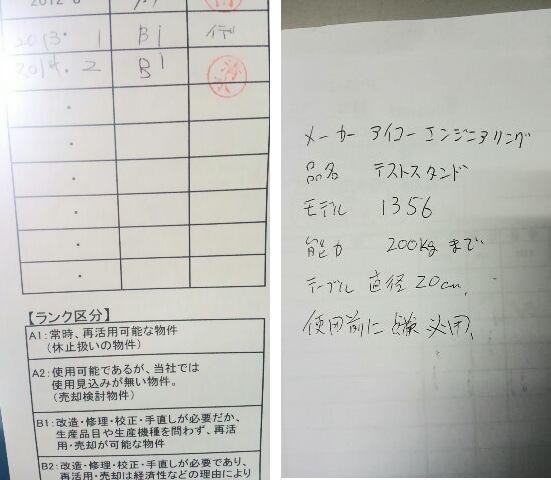 2013・1 B1 イデ
2014.2 B1
【ランク区分】
A1：常時、再活用可能な物件
（休止扱いの物件）
A2：使用可能であるが、当社では
使用見込みが無い物件。
（売却検討物件）
B1：改造・修理・校正・手直しが必要だか、
生産品目や生産機種を問わず、再活
用・売却が可能な物件
B2：改造・修理・校正・手直しが必要であり、
再活用・売却は経済性などの理由により
メーカー アイコーエンジニアリング
品名 テストスタンド
モデル 1356
能力 200kgまで
テーブル 直径20cm.
使用前に点検必用、